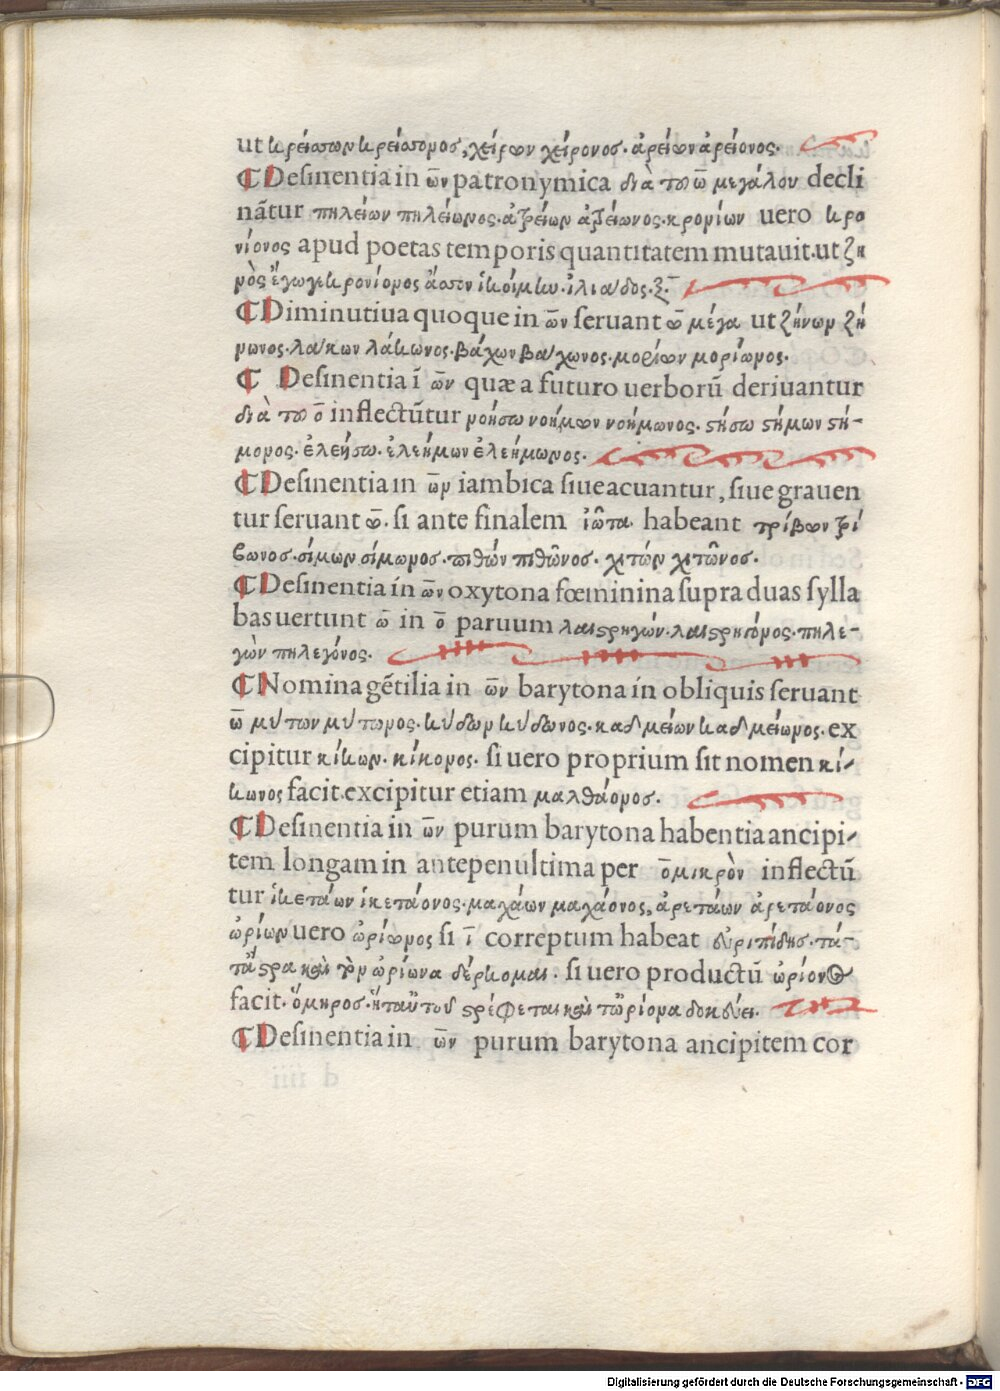 ut κρείσσων κρείσσονος, χείρων χείρονος. ἀρείων ἀρείονος.
¶ Desinentia in ῶν patronymica διὰ τοῦ ω̄ μεγάλου decli
nātur πηλείων πηλείωνος. ἀτρείων ἀτρείωνος. κρονίων uero κρο
νίονος apud poetas temporis quantitatem mutauit. ut ζη
νὸς ἔγωγε κρονίονος ἆσσον ἱκοίμην. ἰλιάδος. ξ.
¶ Diminutiua quoque in ῶν seruant ω̄ μέγα ut ζήνων ζή
νωνος. λάκων λάκωνος. βάχων βάχωνος. μορίων μορίωνος.
¶ Desinentia ī ῶν quæ a futuro uerborū deriuantur
διὰ τοῦ ο̄ inflectūtur νοήσω νοήμων νοήμωνος. στήσω στήμων στή-
μονος. ἐλεήσω. ἐλεήμων ἐλεήμωνος.
¶ Desinentia in ῶν iambica siue acuantur, siue grauen
tur seruant ω̄. si ante finalem ἰῶτα habeant τρίβων τρί
βωνος. σίμων σίμωνος. πιθών πιθῶνος. χιτών χιτῶνος.
¶ Desinentia in ῶν oxytona fœminina supra duas sylla
bas uertunt ω̄ in ο̄ paruum λαιστρηγών. λαιστρηγόνος. πηλε-
γὼν πηλεγόνος.
¶ Nomina gētilia in ῶν barytona in obliquis seruant
ω̄ μύτων μύτωνος. κύδων κύδωνος. καδμείων καδμείωνος. ex
cipitur κίκων. κίκονος. si uero proprium sit nomen κί-
κωνος facit. excipitur etiam μαλθάονος.
¶ Desinentia in ῶν purum barytona habentia ancipi-
tem longam in antepenultima per ο̄μικρὸν inflectū
tur ἱκετάων ἱκετάονος. μαχάων μαχάονος, ἀρετάων ἀρετάονος
ὠρίων uero ὠρίωνος si ῑ correptum habeat εὐριπίδης. τά-
τἄστρα καὶ τὸν ὠρίωνα δέρκομαι. si uero productū ὠρίονος
facit. ὅμηρος. ἥ ταὐτοῦ στρέφεται καὶ τὠρίονα δοκεύει.
¶ Desinentia in ῶν purum barytona ancipitem cor
Digitalisierung gefördert durch die Deutsche Forschungsgemeinschaft - DFG